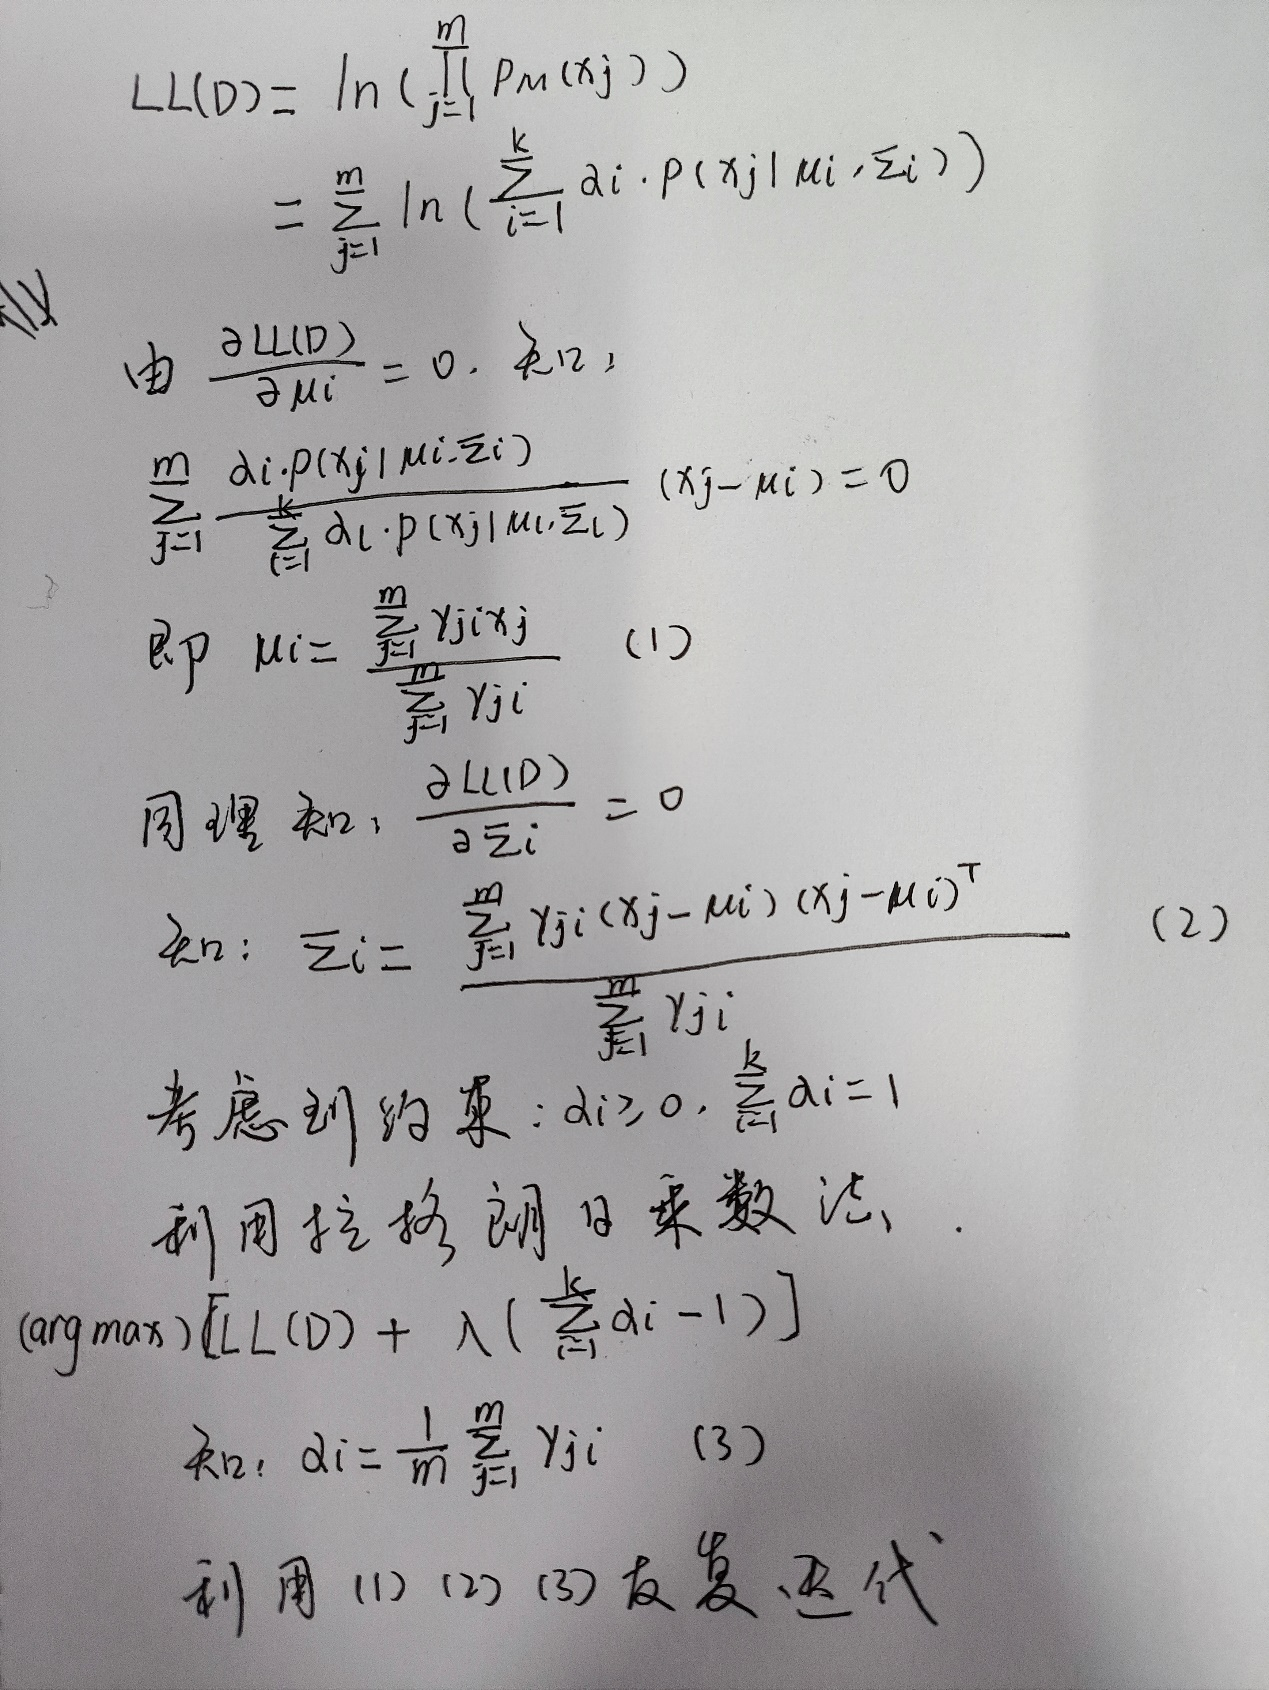 LL(D) = ln(∏_{j=1}^{m} P_M(xj))
= ∑_{j=1}^{m} ln(∑_{i=1}^{k} αi·P(xj|μi,Σi))
由 ∂LL(D)/∂μi = 0. 知:
∑_{j=1}^{m} αi·P(xj|μi,Σi) / ∑_{l=1}^{k} αl·P(xj|μl,Σl) (xj-μi) = 0
即 μi = ∑_{j=1}^{m} γji xj / ∑_{j=1}^{m} γji (1)
同理知, ∂LL(D)/∂Σi = 0
知: Σi = ∑_{j=1}^{m} γji(xj-μi)(xj-μi)^T / ∑_{j=1}^{m} γji (2)
考虑到约束: αi≥0, ∑_{i=1}^{k} αi = 1
利用拉格朗日乘数法,
(argmax)[LL(D) + λ(∑_{i=1}^{k} αi - 1)]
知: αi = 1/m ∑_{j=1}^{m} γji (3)
利用 (1) (2) (3) 反复迭代